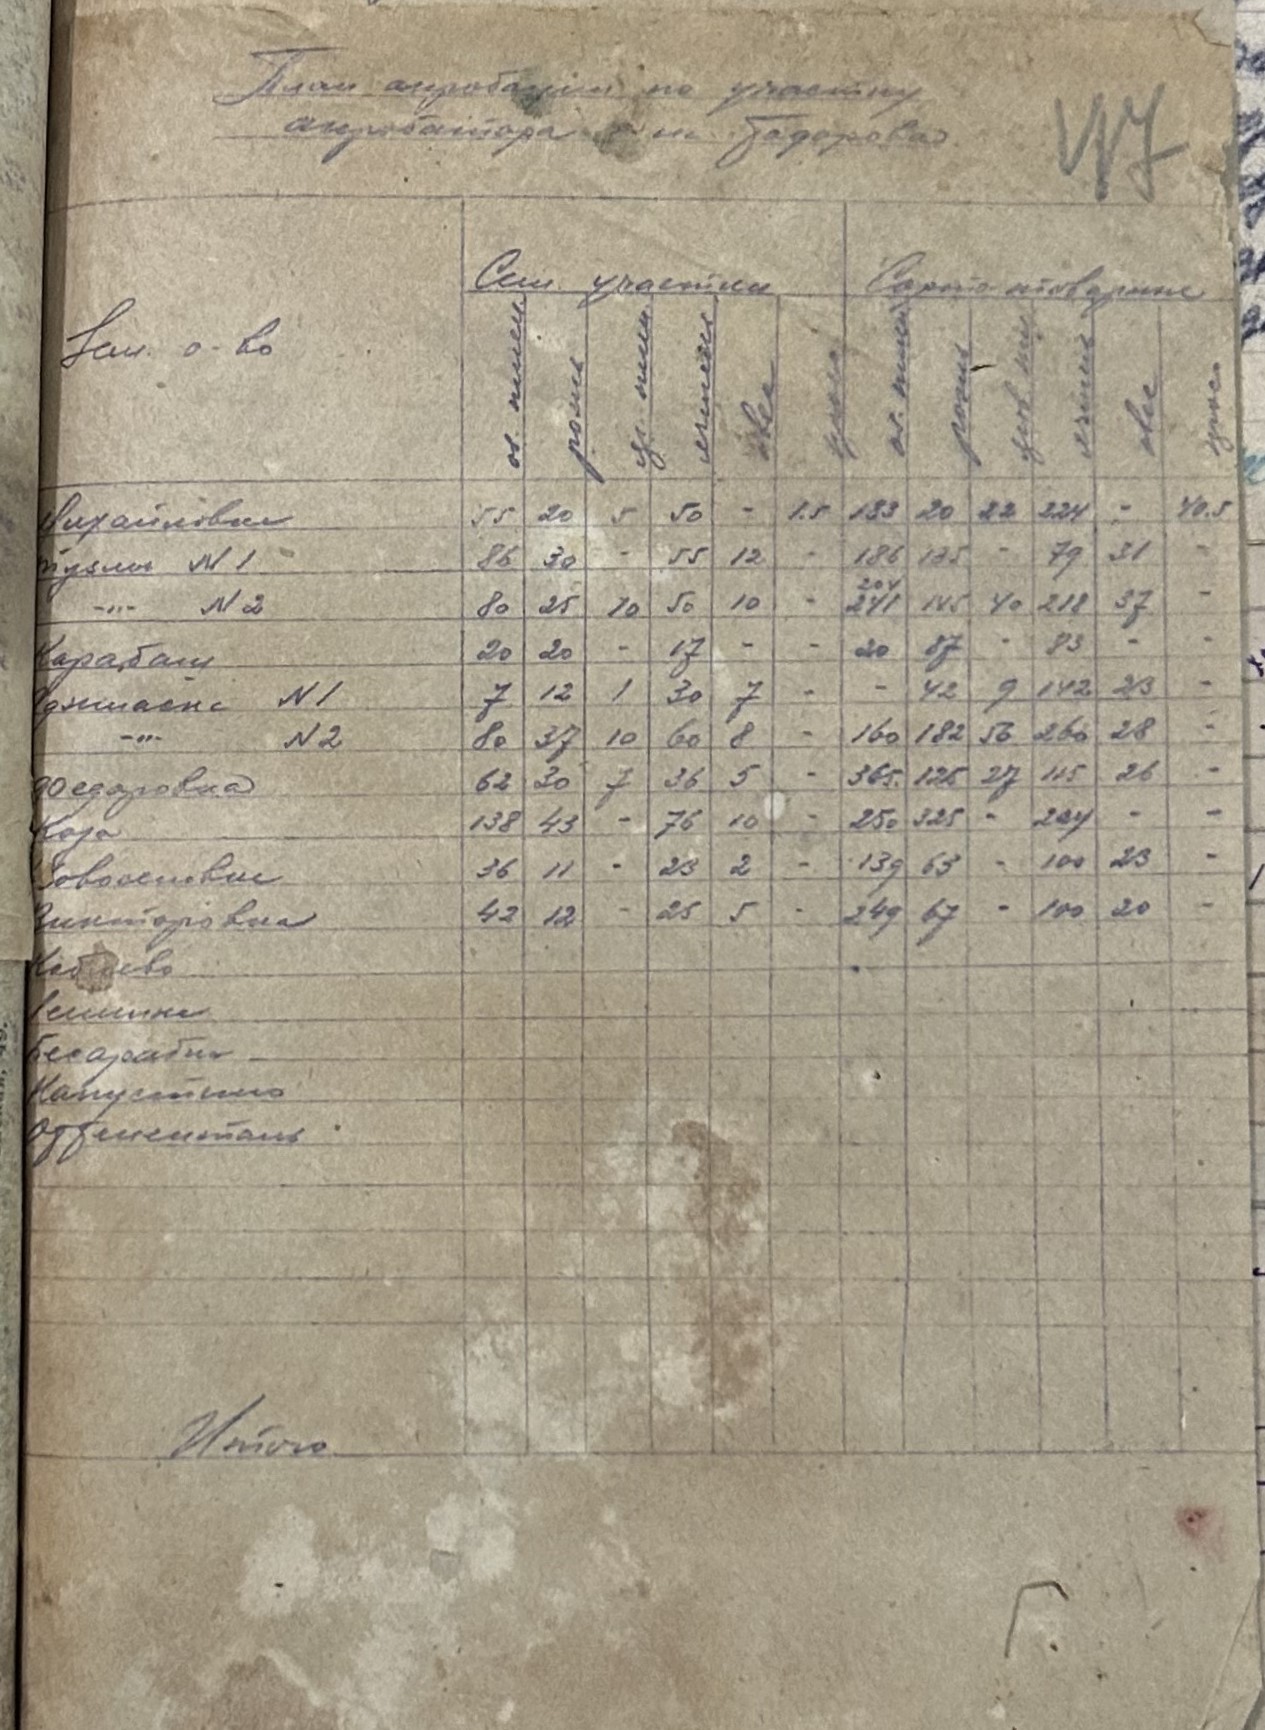 План апробации по участку
апробатора
Зем. о-во
Сем. участки Сорто товарные
оз. пшен. рожь яр. пшен. ячмень овес оз. пшен рожь ячмень овес
Михайловка 55 20 5 50 - 1.5 133 20 22 224 - 40.5
Тузлы N 1 86 30 - 55 12 - 186 135 - 79 31 -
204
-"- N 2 80 25 10 50 10 - 241 145 40 218 37 -
Карабаш 20 20 - 17 - - 20 87 - 83 - -
N 1 7 12 1 30 7 - - 42 9 142 23 -
-"- N 2 80 37 10 60 8 - 160 182 56 260 28 -
Федоровка 62 30 7 36 5 - 365 125 27 115 26 -
Коза 138 43 - 76 10 - 250 325 - 204 - -
36 11 - 23 2 - 139 63 - 100 23 -
Викторовка 42 12 - 25 5 - 249 67 - 100 20 -
Бесарабка
Капустино
Итого